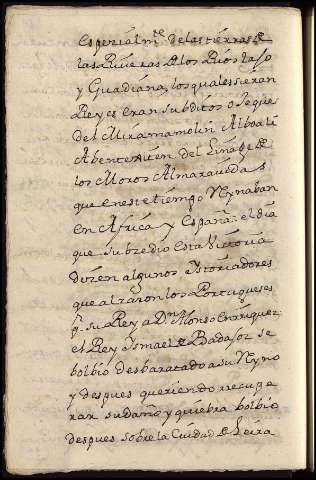 espeçialmte de las tierras de
las Riveras de los Rios taJo
y Guadiana, los quales eran
Reyes eran subditos
del Miramamolin Alboali
Abentexufen del Linaje de
los Moros Almaravedas
que en este tiempo Reynaban
en Africa y España. el dia
que subzedio esta Victoria
dizen algunos Istoriadores
que alzaron los Portugueses
pr. su Rey a Dn. Alonso enrriquez
el Rey Ismael de Badajoz se
bolbio desbaratado a su Reyno
y despues queriendo recupe
rar su daño y quiebra bolbio
despues sobre la Ciudad de Leira